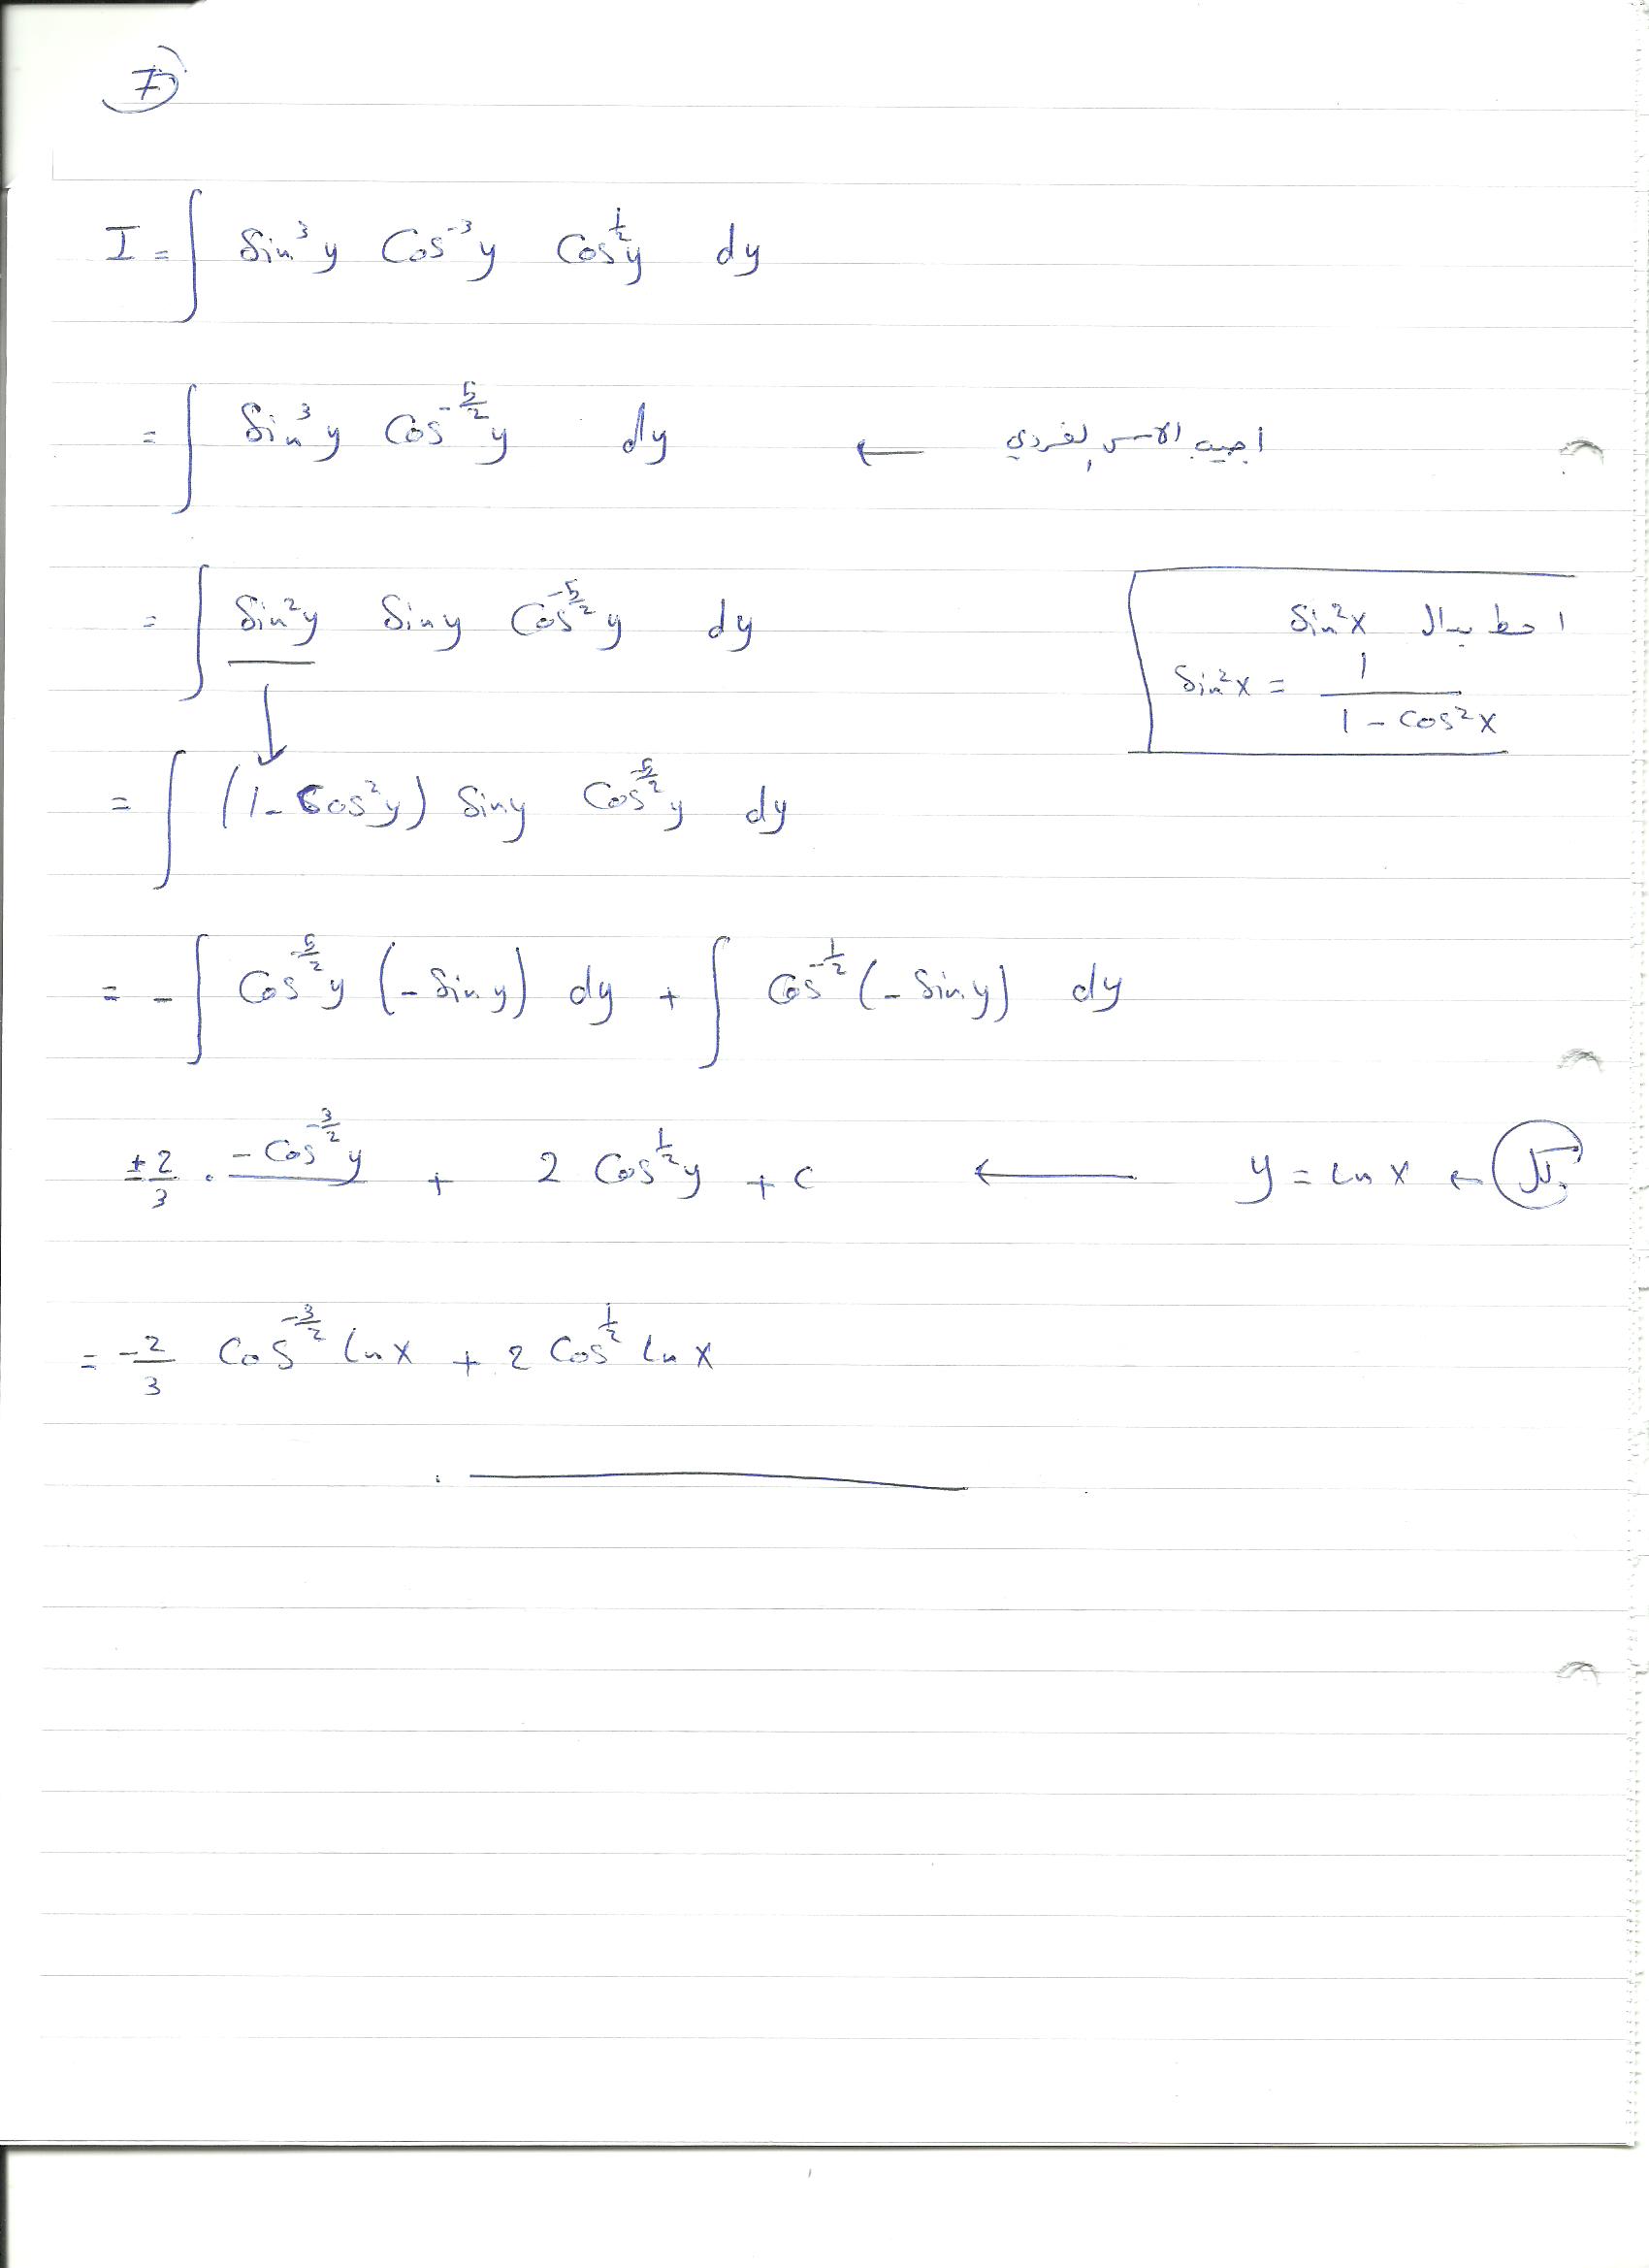 7
I = ∫ Sin³y Cos⁻³y Cos^(1/2)y dy
= ∫ Sin³y Cos^(-5/2)y dy ← اجيب الاس الفردي
= ∫ Sin²y Siny Cos^(-5/2)y dy
احط بدال Sin²x
Sin²x = 1 / (1 - Cos²x)
= ∫ (1 - Cos²y) Siny Cos^(-5/2)y dy
= - ∫ Cos^(-5/2)y (-Siny) dy + ∫ Cos^(-1/2) (-Siny) dy
±2/3 . -Cos^(-3/2)y + 2 Cos^(1/2)y + c ← y = ln x ←
= -2/3 Cos^(-3/2) ln x + 2 Cos^(1/2) ln x